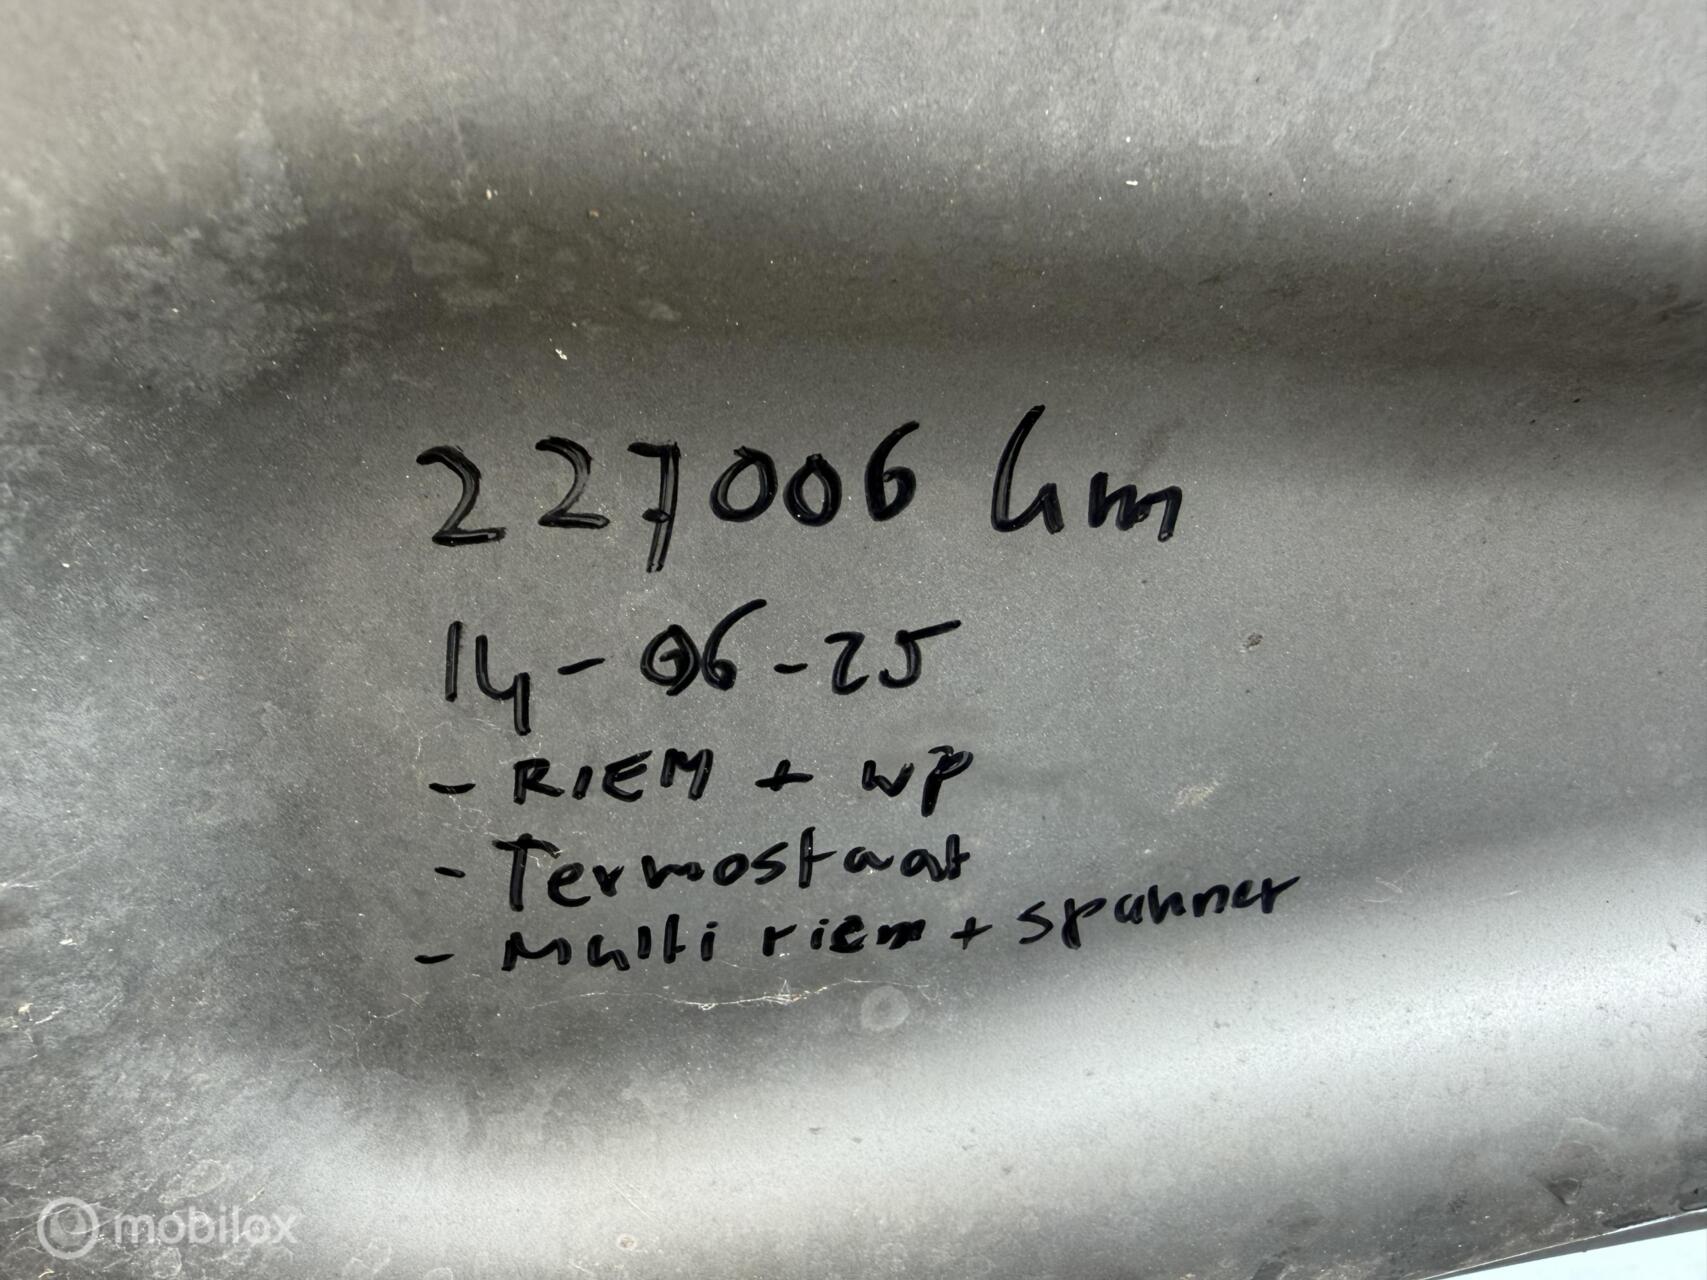 227006 km
14-06-25
- RIEM + WP
- Termostaat
- Multi riem + spanner
mobilox